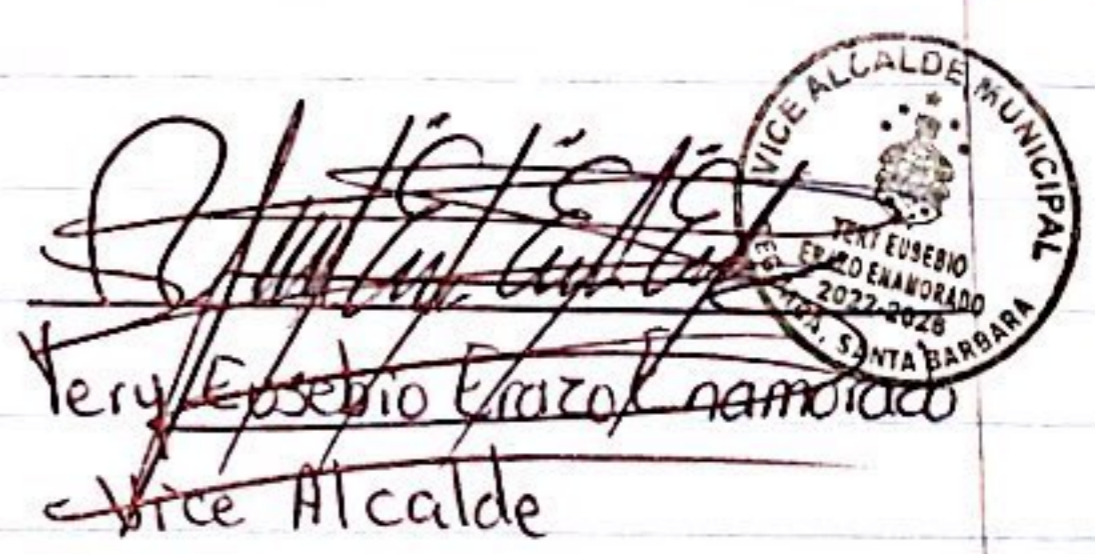 VICE ALCALDE MUNICIPAL
TERY EUSEBIO
ERAZO ENAMORADO
2022-2026
SANTA BARBARA
Tery Eusebio Erazo Enamorado
Vice Alcalde